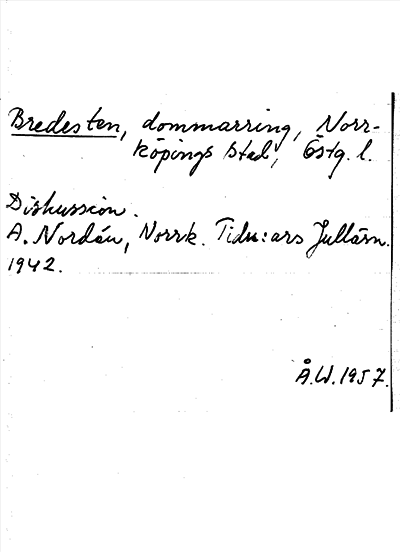 Bredesten, dommarring, Norr-
köpings stad, Östg. l.
Diskussion.
A. Nordén, Norrk. Tidn:ars Jullärn.
1942.
Å.W.1957.